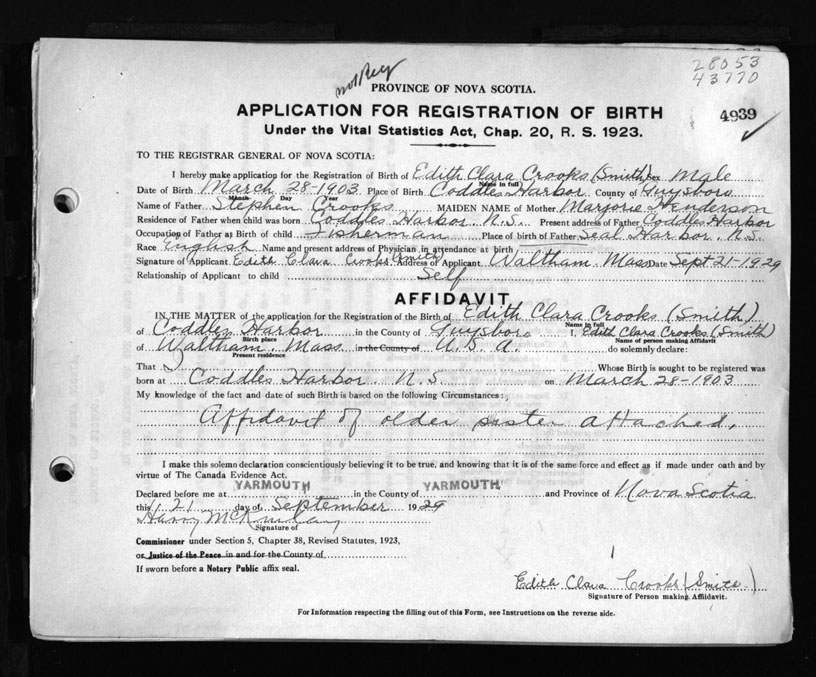 28053
43770
not Reg
PROVINCE OF NOVA SCOTIA.
APPLICATION FOR REGISTRATION OF BIRTH
4939
Under the Vital Statistics Act, Chap. 20, R. S. 1923.
TO THE REGISTRAR GENERAL OF NOVA SCOTIA:
I hereby make application for the Registration of Birth of Edith Clara Crooks (Smith) Sex Male
Name in full
Date of Birth March 28-1903 Place of Birth Coddles Harbor County of Guysboro
Month Day Year
Name of Father Stephen Crooks MAIDEN NAME of Mother Marjorie Henderson
Residence of Father when child was born Coddles Harbor N.S. Present address of Father Coddles Harbor
Occupation of Father at Birth of child Fisherman Place of birth of Father Seal Harbor N.S.
Race English Name and present address of Physician in attendance at birth
Signature of Applicant Edith Clara Crooks (Smith) Address of Applicant Waltham Mass Date Sept 21-1929
Relationship of Applicant to child Self
AFFIDAVIT
IN THE MATTER of the application for the Registration of the Birth of Edith Clara Crooks (Smith)
Name in full
of Coddles Harbor in the County of Guysboro I, Edith Clara Crooks (Smith)
Birth place Name of person making Affidavit
of Waltham Mass in the County of U.S.A. do solemnly declare:
Present residence
That Whose Birth is sought to be registered was
born at Coddles Harbor N.S. on March 28-1903
My knowledge of the fact and date of such Birth is based on the following Circumstances:
Affidavit of older sister attached.
I make this solemn declaration conscientiously believing it to be true, and knowing that it is of the same force and effect as if made under oath and by
virtue of The Canada Evidence Act.
Declared before me at YARMOUTH in the County of YARMOUTH and Province of Nova Scotia
this 21 day of September 1929
Harry McKinlay
Signature of
Commissioner under Section 5, Chapter 38, Revised Statutes, 1923,
or Justice of the Peace in and for the County of
If sworn before a Notary Public affix seal.
Edith Clara Crooks (Smith)
Signature of Person making Affidavit.
For Information respecting the filling out of this Form, see Instructions on the reverse side.